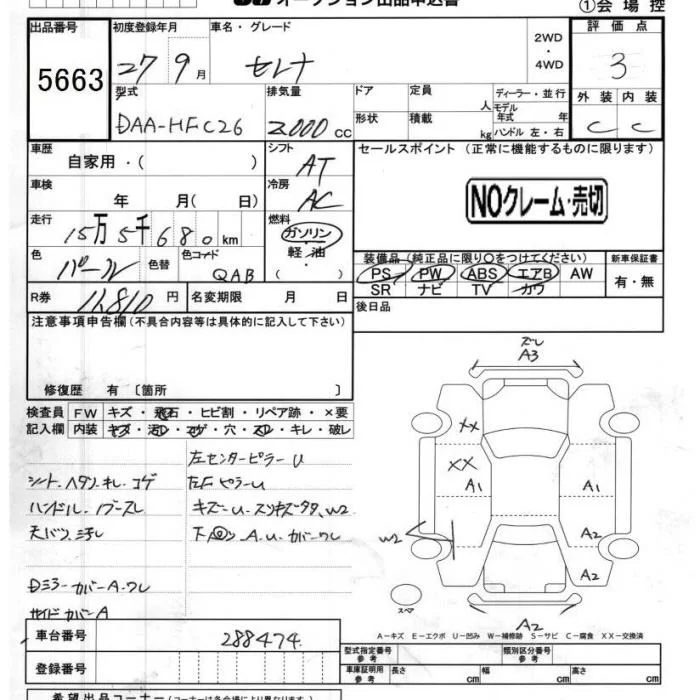 オークション出品申込書 ①会場控
出品番号 初度登録年月 車名・グレード 2WD・4WD 評価点
5663 27 9月 セレナ 3
型式 排気量 ドア 定員 人 ディーラー・並行 外装 内装
DAA-HFC26 2000cc 形状 積載 kg モデル年式 年 ハンドル 左・右 C C
車歴 自家用・( ) シフト AT セールスポイント (正常に機能するものに限ります)
車検 年 月( 日) 冷房 AC NOクレーム・売切
走行 15万5千680km 燃料 ガソリン 軽・油 ( )
色 パール 色替 色コード QAB 装備品(純正品に限り○をつけてください) 新車保証書
PS PW ABS エアB AW 有・無
SR ナビ TV カワ
R券 11,810円 名変期限 月 日 後日品
注意事項申告欄(不具合内容等は具体的に記入して下さい)
修復歴 有 〔箇所 〕
検査員 FW キズ・飛石・ヒビ割・リペア跡・×要
記入欄 内装 キズ・汚れ・コゲ・穴・スレ・キレ・破レ
左センターピラーU
シート ヘタリ キレ コゲ 左Fピラー U
ハンドル
W2
カバー ワレ
カバー A ワレ
サイド カバー A
A3
XX
XX
A1 A1
W2 A2
A2
スペア
A2
A-キズ E-エクボ U-凹み W-補修跡 S-サビ C-腐食 XX-交換済
車台番号 288474
登録番号
型式指定番号 参考 類別区分番号 参考
車庫証明用 参考 長さ cm 幅 cm 高さ cm
希望出品コーナー(コーナーは各会場により異なります)